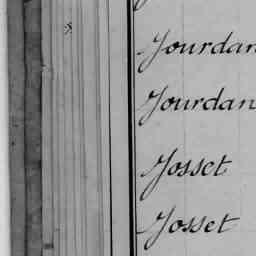 Jourdan
Jourdan
Josset
Josset